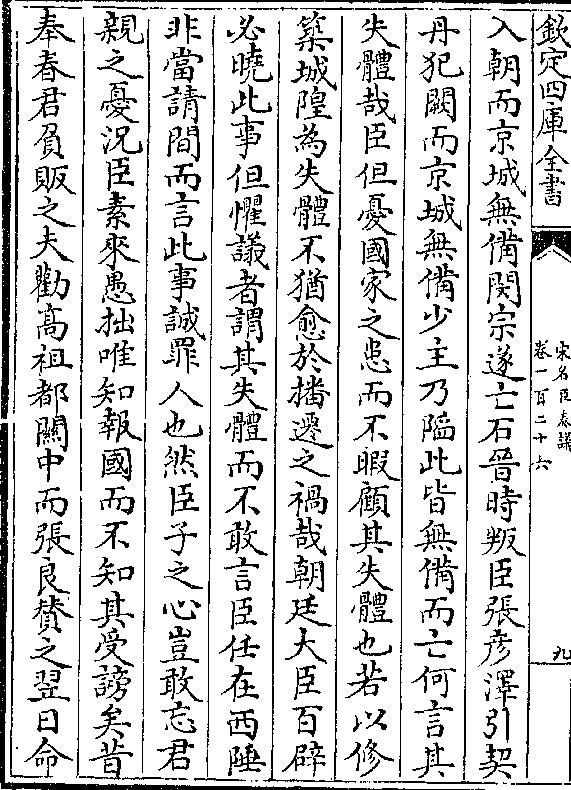 欽定四庫全書
宋名臣奏議
卷一百二十六
九
入朝而京城無備閔宗遂亡石晉時叛臣張彥澤引契
丹犯闕而京城無備少主乃陷此皆無備而亡何言其
失體哉臣但憂國家之患而不暇顧其失體也若以修
築城隍為失體不猶愈於播遷之禍哉朝廷大臣百辟
必曉此事但懼議者謂其失體而不敢言臣任在西陲
非當請間而言此事誠罪人也然臣子之心豈敢忘君
親之憂況臣素來愚拙唯知報國而不知其受謗矣昔
奉春君負販之夫勸髙祖都關中而張良賛之翌日命